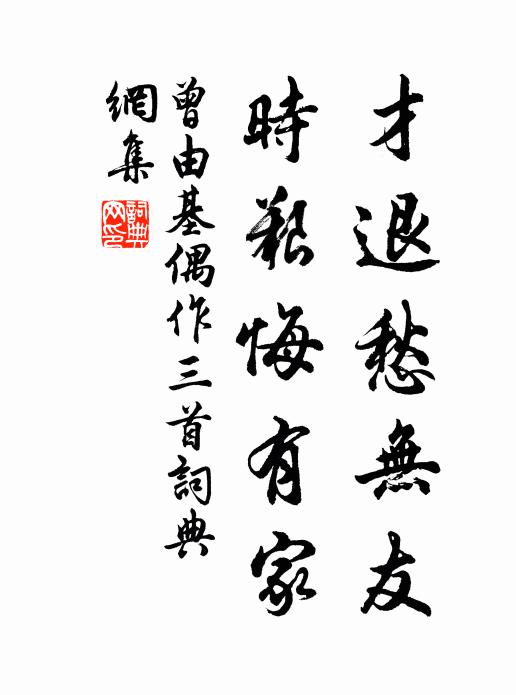 才退愁無友
時艱悔有家
曾由基偶作三首詞典
網集
詞典網印